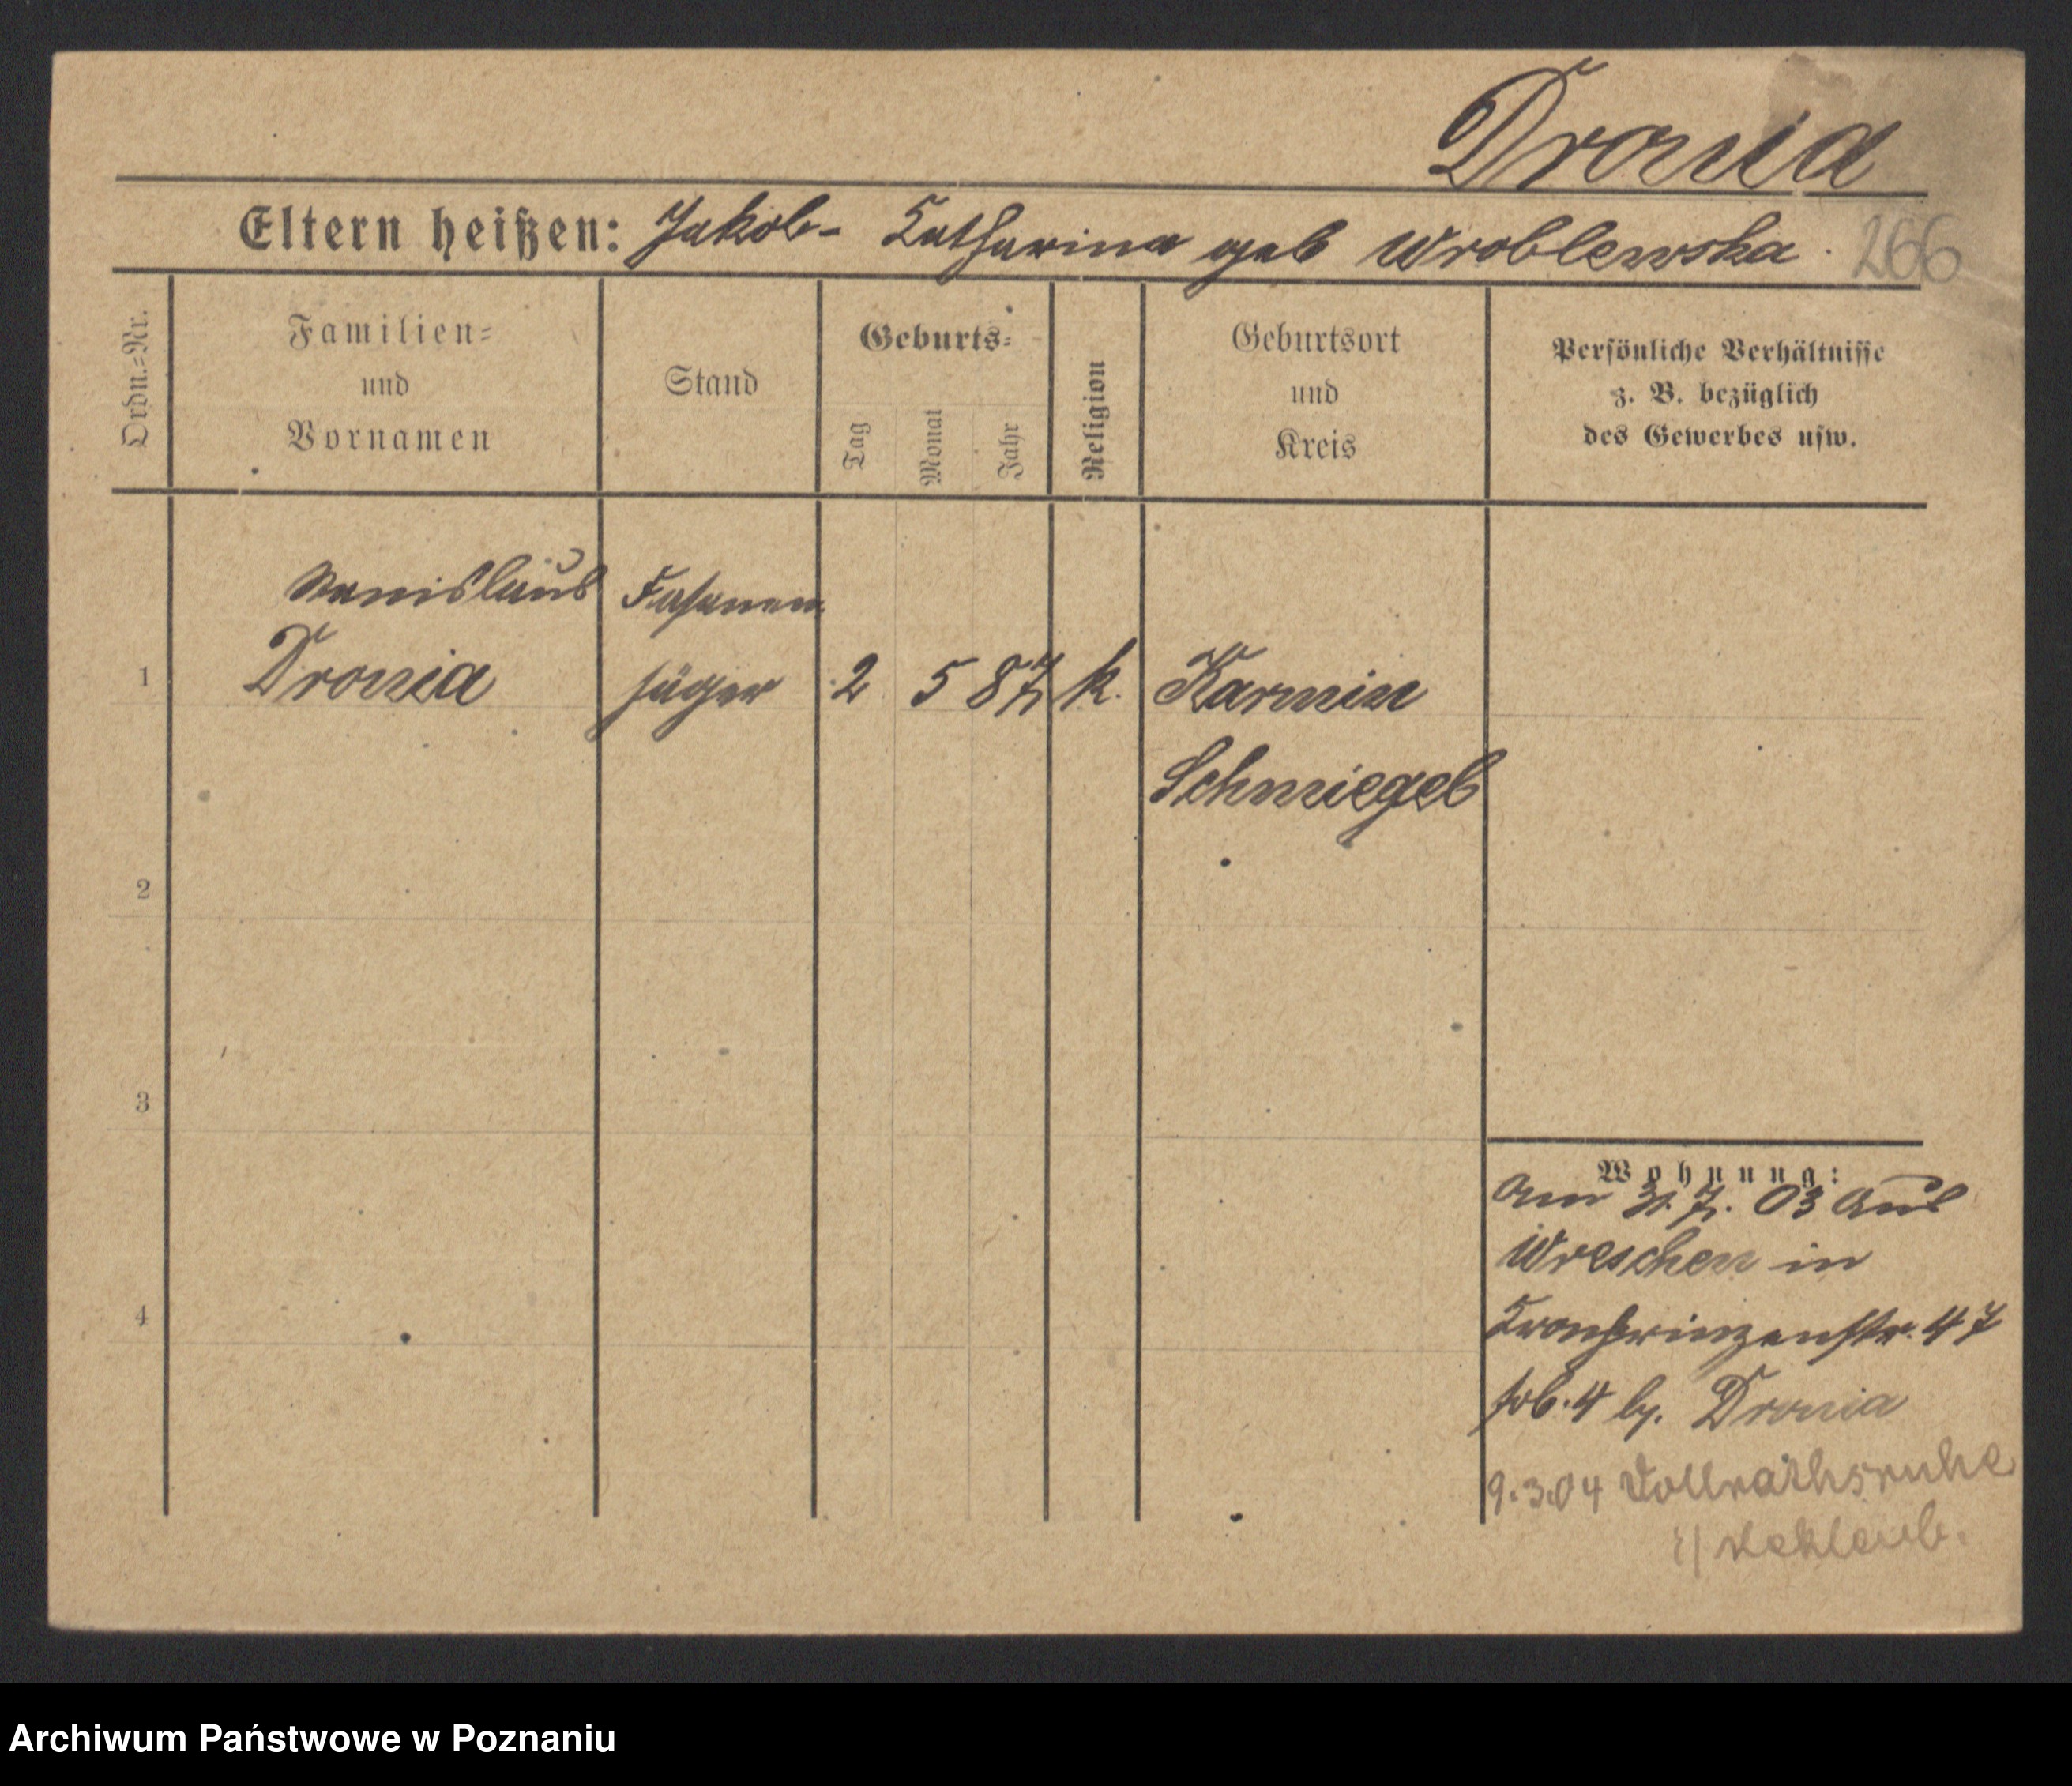 Dronia
Eltern heißen: Jakob - Katharina geb Wroblewska.
266
Ordn.=Nr.
Familien=
und
Vornamen
Stand
Geburts=
Tag
Monat
Jahr
Religion
Geburtsort
und
Kreis
Persönliche Verhältnisse
z. B. bezüglich
des Gewerbes usw.
Stanislaus Fasanen
1 Dronia jäger 2 5 87 k. Karmin
Schmiegel
2
3
4
Wohnung:
Am 31.7.03 aus
Wreschen in
Kronprinzenstr. 47
4 bz. Dronia
9.3.04 Vollrathsruhe
Archiwum Państwowe w Poznaniu